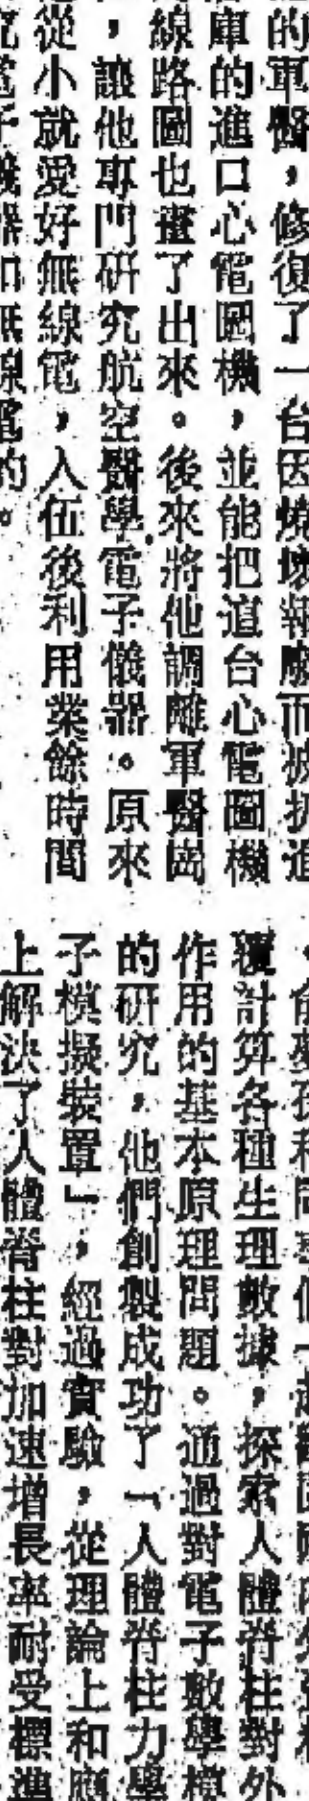 的軍醫，修復了一台因燒壞報廢而被拆進
庫的進口心電圖機，並能把這台心電圖機
線路圖也畫了出來。後來將他調離軍醫崗
，讓他專門研究航空醫學電子儀器。原來
從小就愛好無線電，入伍後利用業餘時間
無線電的。
覆計算各種生理數據，探索人體脊柱對外
作用的基本原理問題。通過對電子數學模
的研究，他們創製成功了「人體脊柱力學
子模擬裝置」，經過實驗，從理論上和應
上解決了人體脊柱對加速增長率耐受標準